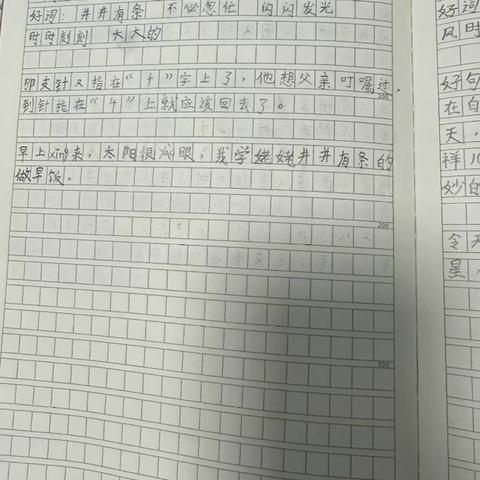 好词：井井有条 不必急忙 闪闪发光
时时刻刻 大大的
那支针又指在“4”字上了，他想父亲叮嘱过，
到针指在“4”上就应该回去了。
100
早上xing来，太阳很 眼，我学姥姥井井有条的
做早饭。
200
300
好词
风时
好句
在自
天，
祥
妙的
今天
星，